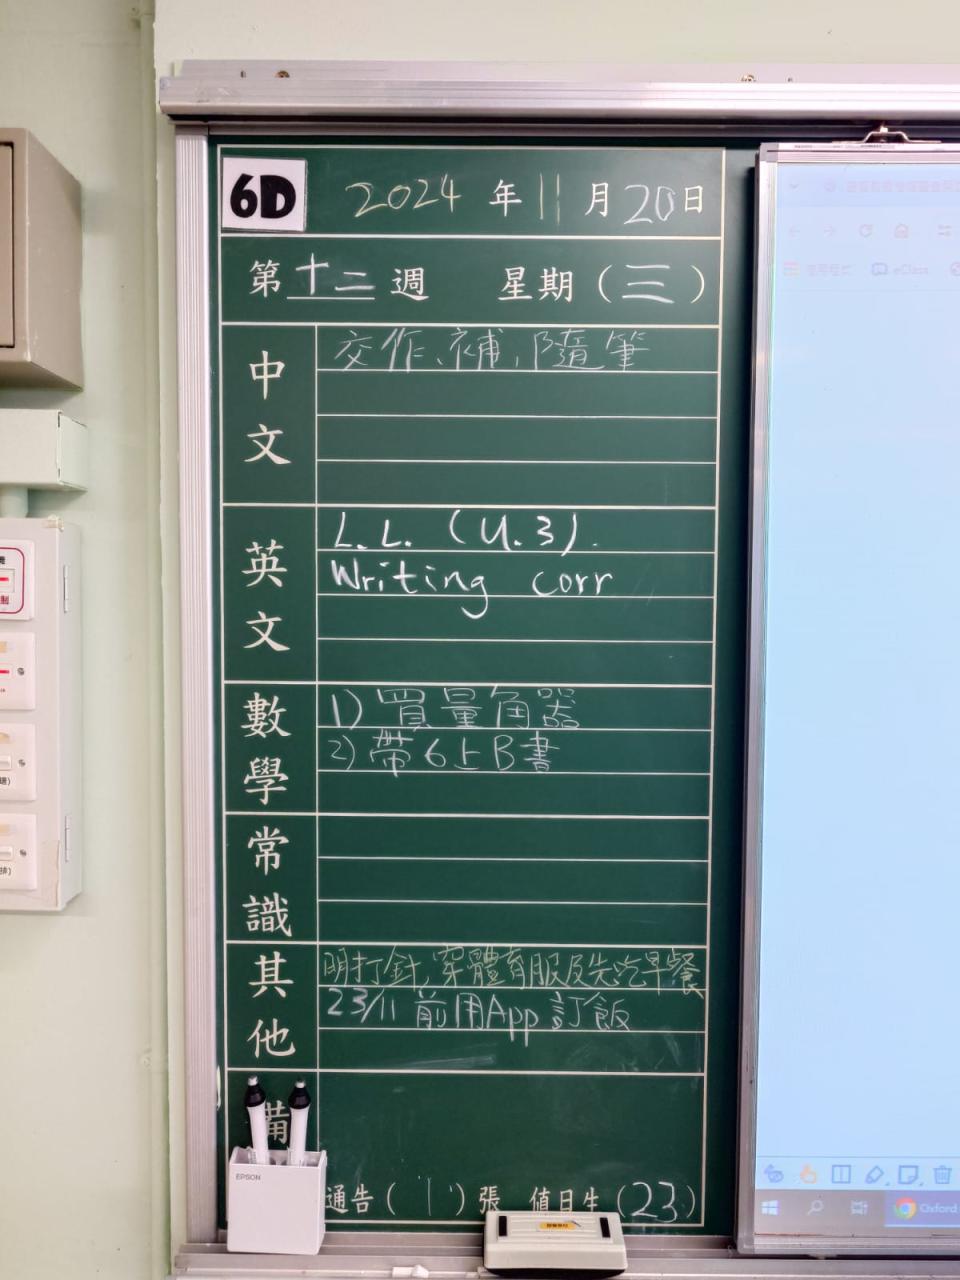 6D 2024 年 11 月 20 日
第 十二 週 星期（三）
中文
交作、補、隨筆
英文
L.L. (U.3).
Writing corr
數學
1) 買量角器
2) 帶6上B書
常識
其他
明打針,穿體育服及先吃早餐
23/11 前用App訂飯
備
通告（1）張 值日生（23）
EPSON
eClass
Oxford